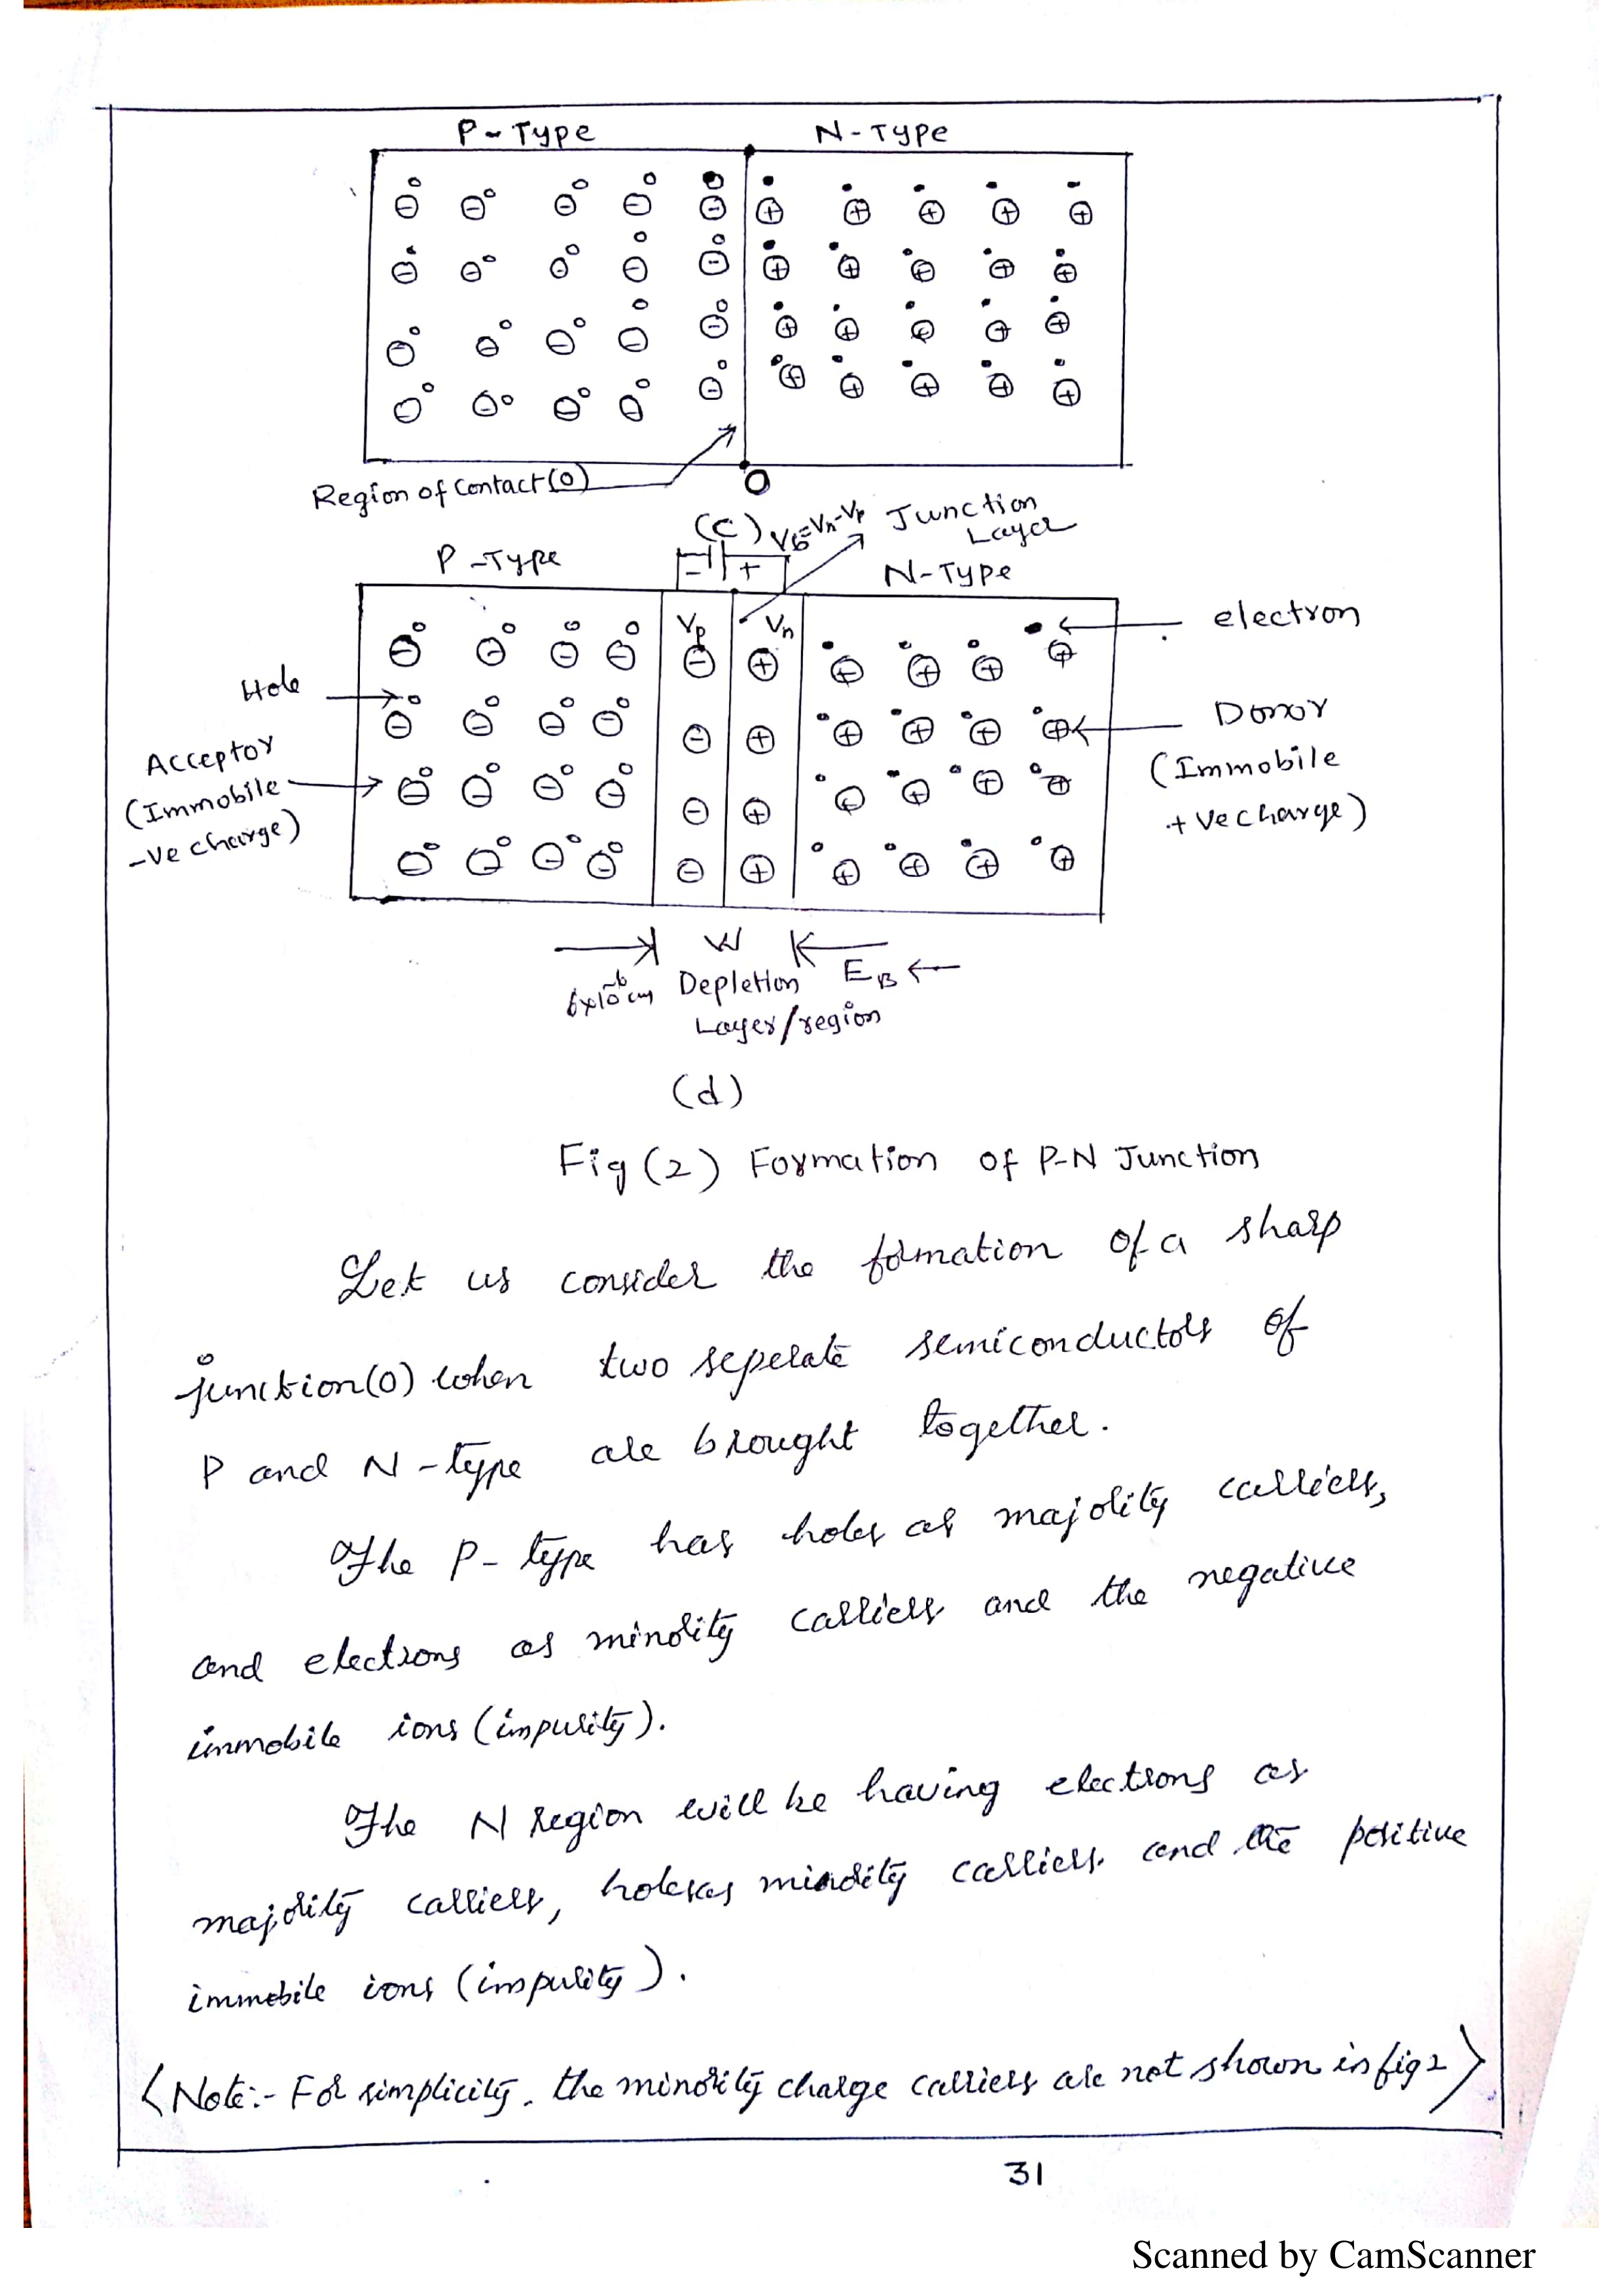 P-Type N-Type
Region of Contact(O)
O
(C) VB=Vn-Vp Junction
Layer
P-Type N-Type
Vp Vn
electron
Hole
Donor
Acceptor
(Immobile
(Immobile
-Ve charge)
+ Ve charge)
W
6x10⁻⁶cm Depletion EB ←
Layer/region
(d)
Fig (2) Formation of P-N Junction
Let us consider the formation of a sharp
junction(0) when two seperate semiconductors of
P and N-type are brought together.
The P-type has holes as majority carriers,
and electrons as minority carriers and the negative
immobile ions (impurity).
The N region will be having electrons as
majority carriers, holes as minority carriers and the positive
immobile ions (impurity).
(Note:- For simplicity, the minority charge carriers are not shown in fig 2)
31
Scanned by CamScanner